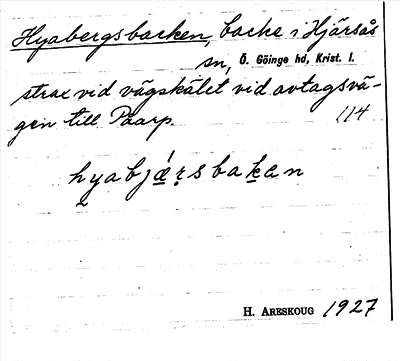 Hyabergsbacken, backe i Hjärsås
sn, Ö. Göinge hd, Krist. l.
strax vid vägskälet vid avtagsvä-
gen till Paarp. 114
hyabjǽ̱ṛsbaḵan
H. ARESKOUG 1927